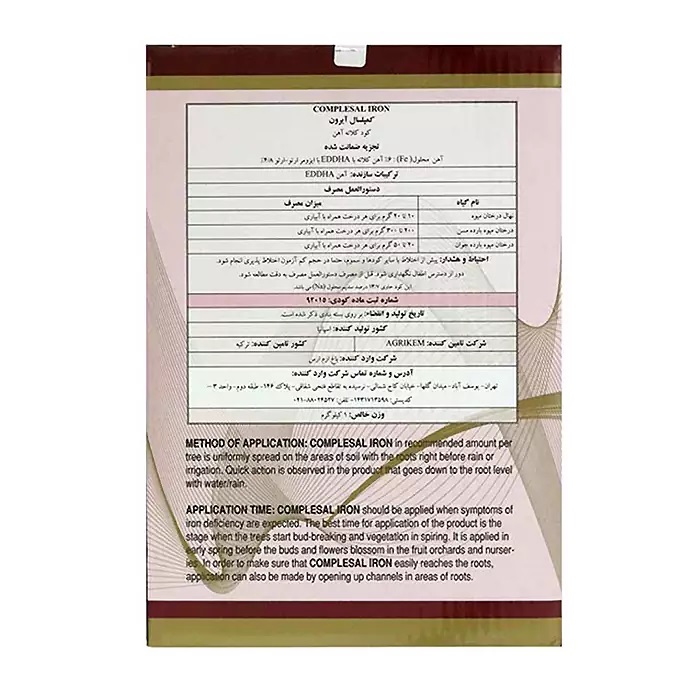 COMPLESAL IRON
کمپلسال آیرون
کود کلاته آهن
تجزیه ضمانت شده
آهن محلول( Fe) : ۶٪ آهن کلاته با EDDHA با ایزومر ارتو-ارتو ۴/۸٪
ترکیبات سازنده: آهن EDDHA
دستورالعمل مصرف
نام گیاه میزان مصرف
نهال درختان میوه ۱۰ تا ۲۰ گرم برای هر درخت همراه با آبیاری
درختان میوه بارده مسن ۲۰۰ تا ۳۰۰ گرم برای هر درخت همراه با آبیاری
درختان میوه بارده جوان ۲۰ تا ۵۰ گرم برای هر درخت همراه با آبیاری
احتیاط و هشدار: پیش از اختلاط با سایر کودها و سموم، حتما در حجم کم آزمون اختلاط پذیری انجام شود.
دور از دسترس اطفال نگهداری شود. قبل از مصرف دستورالعمل مصرف به دقت مطالعه شود.
این کود حاوی ۱۳/۷ درصد سدیم محلول (Na) می باشد.
شماره ثبت ماده کودی: ۹۲۰۱۵
تاریخ تولید و انقضاء: بر روی بسته بندی ذکر شده است.
کشور تولید کننده: اسپانیا
شرکت تامین کننده: AGRIKEM کشور تامین کننده: ترکیه
شرکت وارد کننده: باغ ارم ارس
آدرس و شماره تماس شرکت وارد کننده:
تهران- یوسف آباد- میدان گلها- خیابان کاج شمالی- نرسیده به تقاطع فتحی شقاقی- پلاک ۱۴۶- طبقه دوم- واحد ۳ –
کدپستی: ۱۴۳۱۷۱۳۵۹۸- تلفن: ۸۸۰۲۴۵۳۷-۰۲۱
وزن خالص: ۱ کیلوگرم
METHOD OF APPLICATION: COMPLESAL IRON in recommended amount per
tree is uniformly spread on the areas of soil with the roots right before rain or
irrigation. Quick action is observed in the product that goes down to the root level
with water/rain.
APPLICATION TIME: COMPLESAL IRON should be applied when symptoms of
iron deficiency are expected. The best time for application of the product is the
stage when the trees start bud-breaking and vegetation in spiring. It is applied in
early spring before the buds and flowers blossom in the fruit orchards and nurser-
ies. In order to make sure that COMPLESAL IRON easily reaches the roots,
application can also be made by opening up channels in areas of roots.